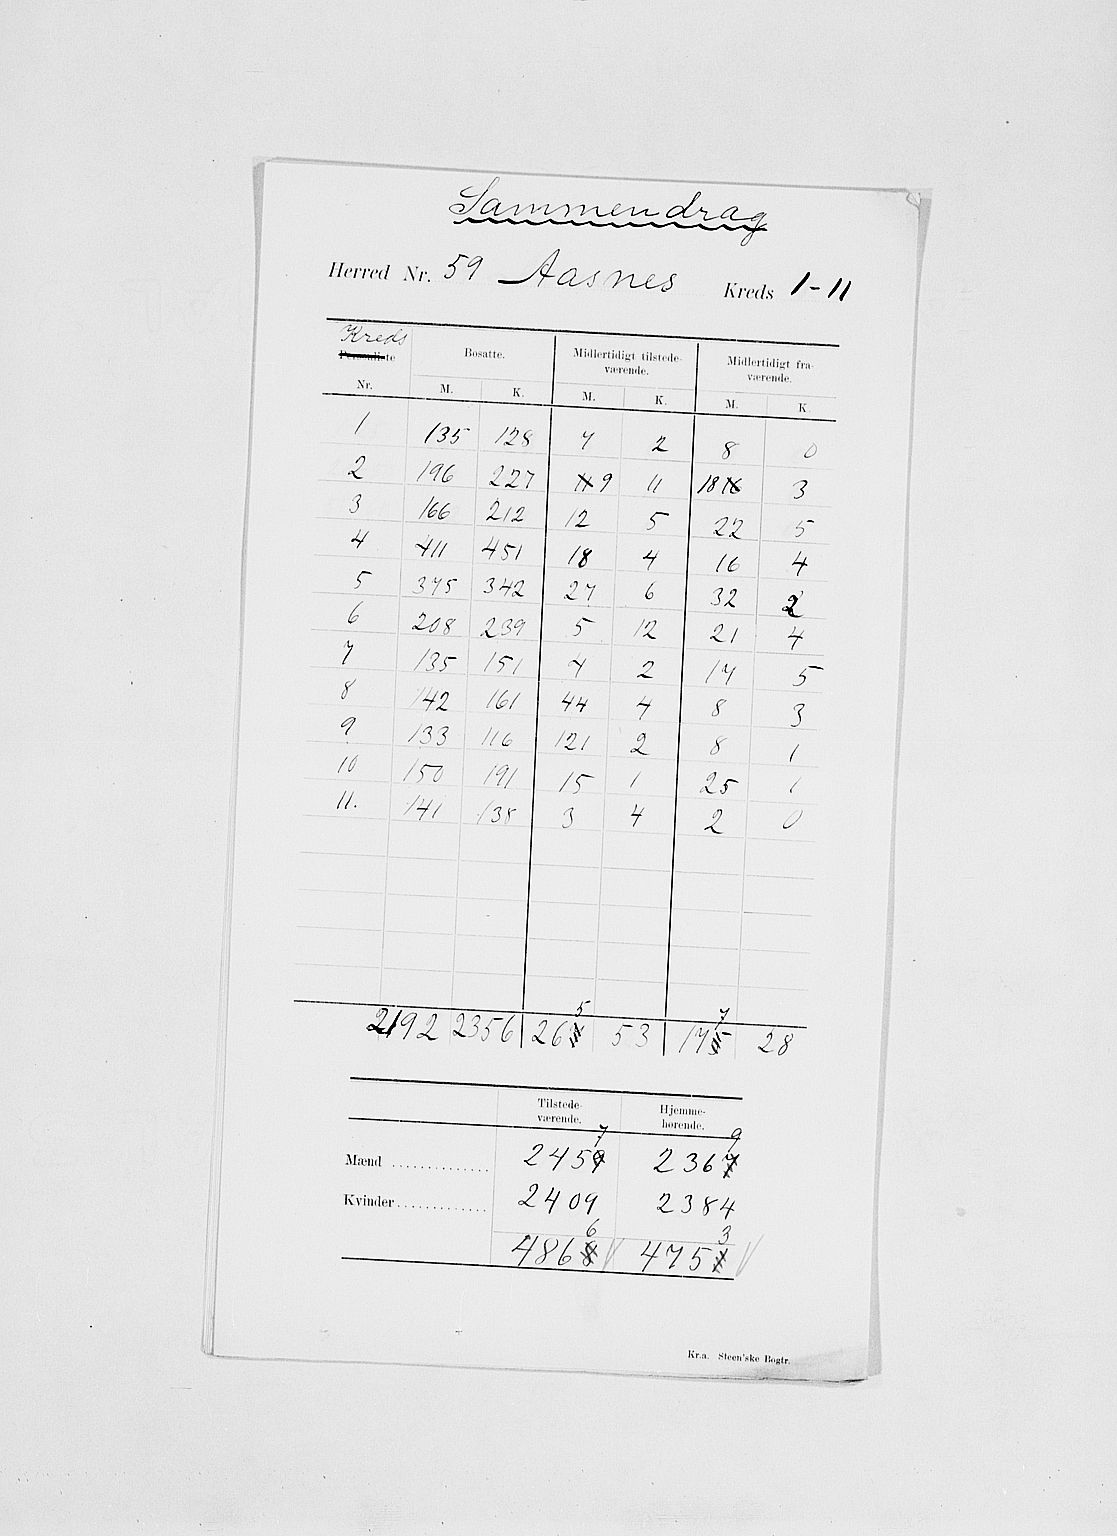 Sammendrag
Herred Nr. 59 Aasnes Kreds 1-11
Kreds Bosatte. Midlertidigt tilstede- Midlertidigt fra-
værende. værende.
Nr. M. K. M. K. M. K.
1 135 128 7 2 8 0
2 196 227 9 11 18 3
3 166 212 12 5 22 5
4 411 451 18 4 16 4
5 375 342 27 6 32 2
6 208 239 5 12 21 4
7 135 151 4 2 17 5
8 142 161 44 4 8 3
9 133 116 121 2 8 1
10 150 191 15 1 25 1
11. 141 138 3 4 2 0
2192 2356 265 53 177 28
Tilstede- Hjemme-
værende. hørende.
Mænd .............. 2457 2369
Kvinder ............. 2409 2384
4866 4753
Kr.a. Steen'ske Bogtr.